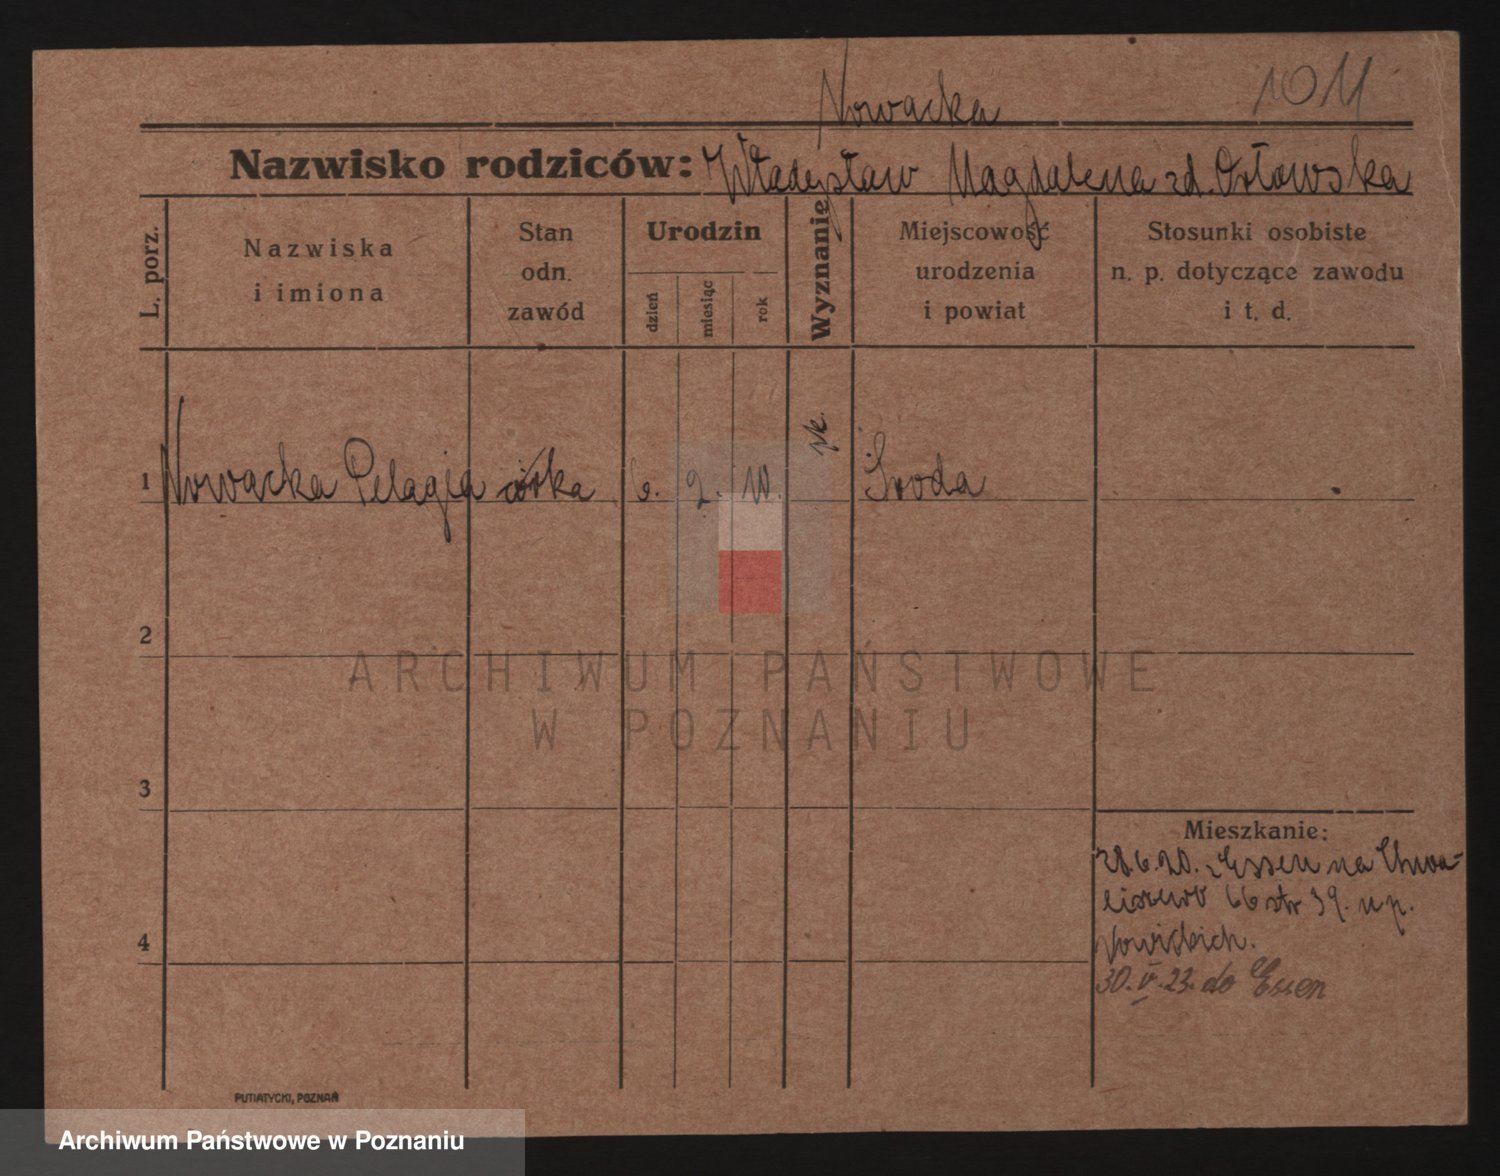 1011
Nowacka
Nazwisko rodziców: Władysław Magdalena zd. Orłowska
L. porz.
Nazwiska
i imiona
Stan
odn.
zawód
Urodzin
dzień
miesiąc
rok
Wyznanie
Miejscowość
urodzenia
i powiat
Stosunki osobiste
n. p. dotyczące zawodu
i t. d.
1 Nowacka Pelagia córka 6. 2. 10. Środa
2
ARCHIWUM PAŃSTWOWE
W POZNANIU
3
Mieszkanie:
28.6.20. z Essen na Chwa-
liszewo 66 str 39. u p.
4
30.V.23. do Essen
PUTIATYCKI, POZNAŃ
Archiwum Państwowe w Poznaniu